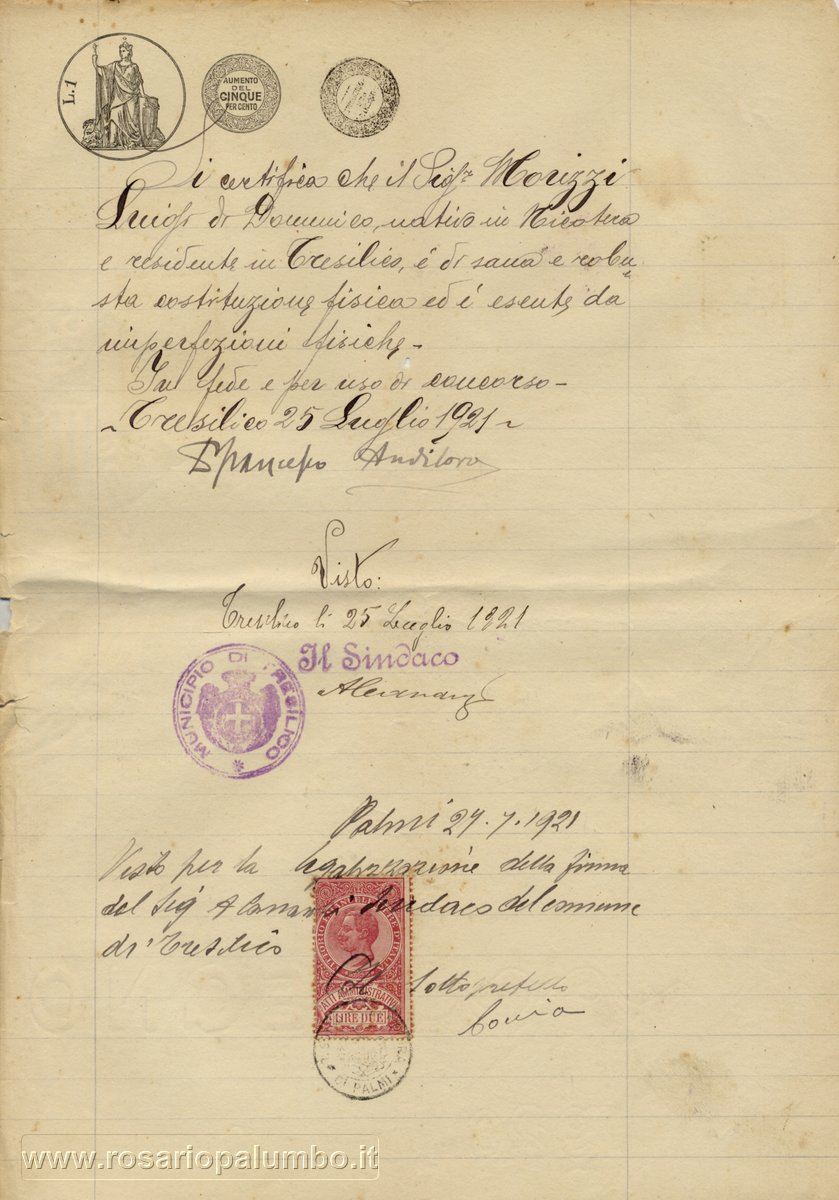 L. 1
AUMENTO
DEL
CINQUE
PER CENTO
Si certifica che il Sigr Morizzi
Luigi di Domenico, nativo in Nicotera
e residente in Tresilico, é di sana e robu=
sta costituzione fisica ed é esente da
imperfezioni fisiche -
In fede e per uso di concorso -
- Tresilico 25 Luglio 1921 -
Francesco Auditore
Visto:
Tresilico li 25 Luglio 1921
Il Sindaco
MUNICIPIO DI TRESILICO
Palmi 27. 7. 1921
Visto per la legalizzazione della firma
del Sig Sindaco del comune
di Tresilico
Il Sottoprefetto
VITTORIO EMANUELE RE D'ITALIA
ATTI AMMINISTRATIVI
LIRE DUE
DI PALMI
www.rosariopalumbo.it